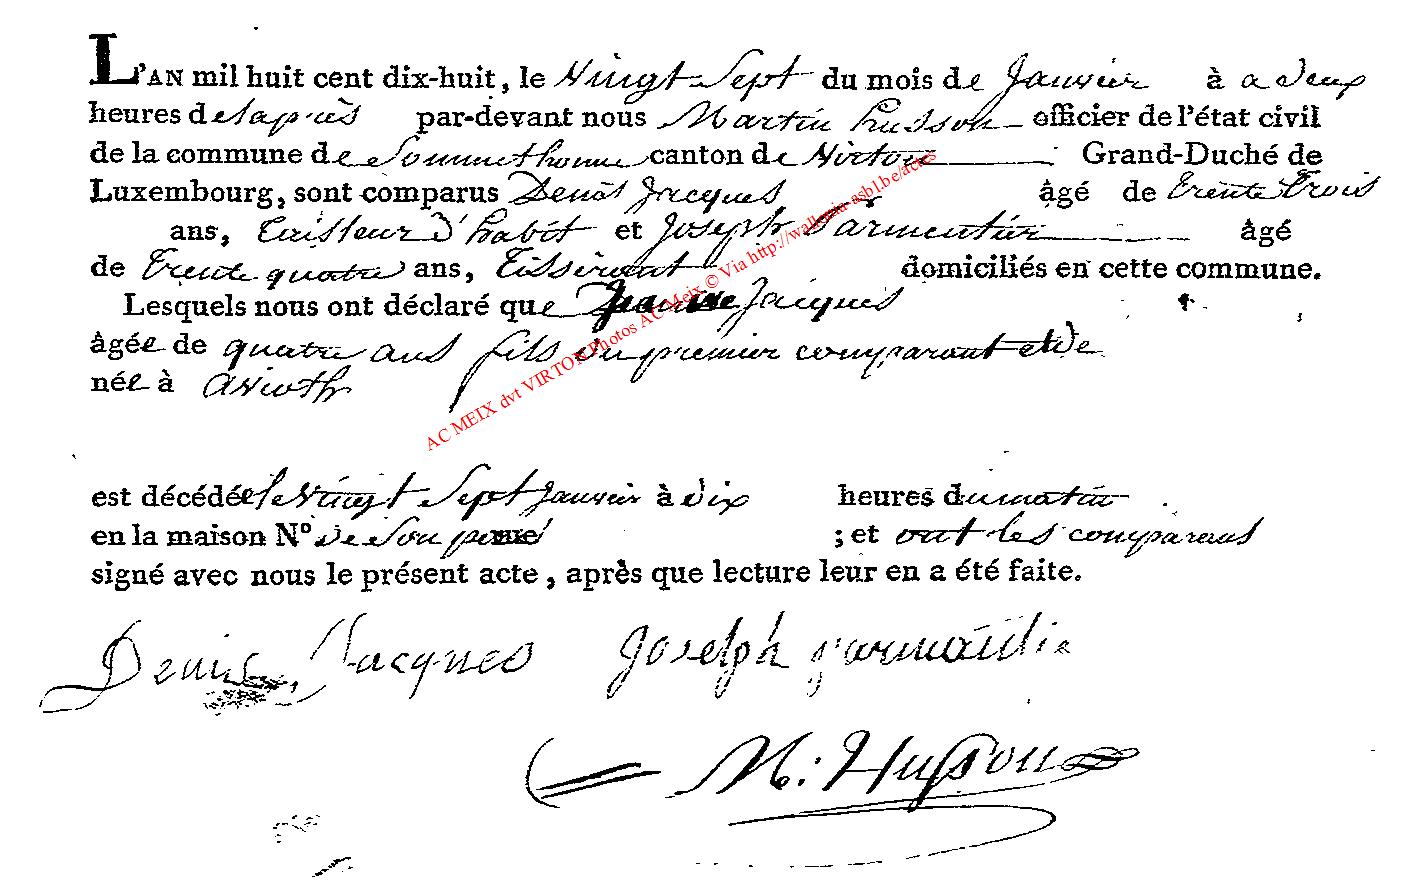 L'AN mil huit cent dix-huit, le vingt Sept du mois de Janvier à a deux
heures delaprès par-devant nous Martin husson officier de l'état civil
de la commune de Sommethonne canton de Virton Grand-Duché de
Luxembourg, sont comparus Denis Jacques âgé de trente trois
ans, tailleur d'habit et Joseph Parmentier âgé
de trente quatre ans, tisserant domiciliés en cette commune.
Lesquels nous ont déclaré que Jacques
âgée de quatre ans fils du premier comparant et de
née à avioth
est décédée le vingt Sept Janvier à dix heures du matin
en la maison N° de Son ; et ont les comparans
signé avec nous le présent acte, après que lecture leur en a été faite.
Denis Jacques Joseph
M: Husson
AC MEIX dvt VIRTON Photos AC Meix © Via http://wallonia-asbl.be/actes